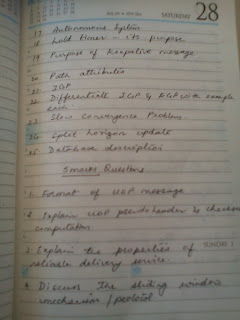 SATURDAY 28
17. Autonomous System
18. Hold timer - its purpose
19. Purpose of Keepalive message
20. Path attributes
21. IGP
22. Differentiate IGP & EGP with example
each.
23. Slow Convergence Problem.
24. Split horizon update
25. Database description
5 marks Questions
1. Format of UDP message
2. Explain UDP pseudoheader & checksum
computation.
3. Explain the properties of
reliable delivery service.
SUNDAY
4. Discuss the sliding window
mechanism / protocol